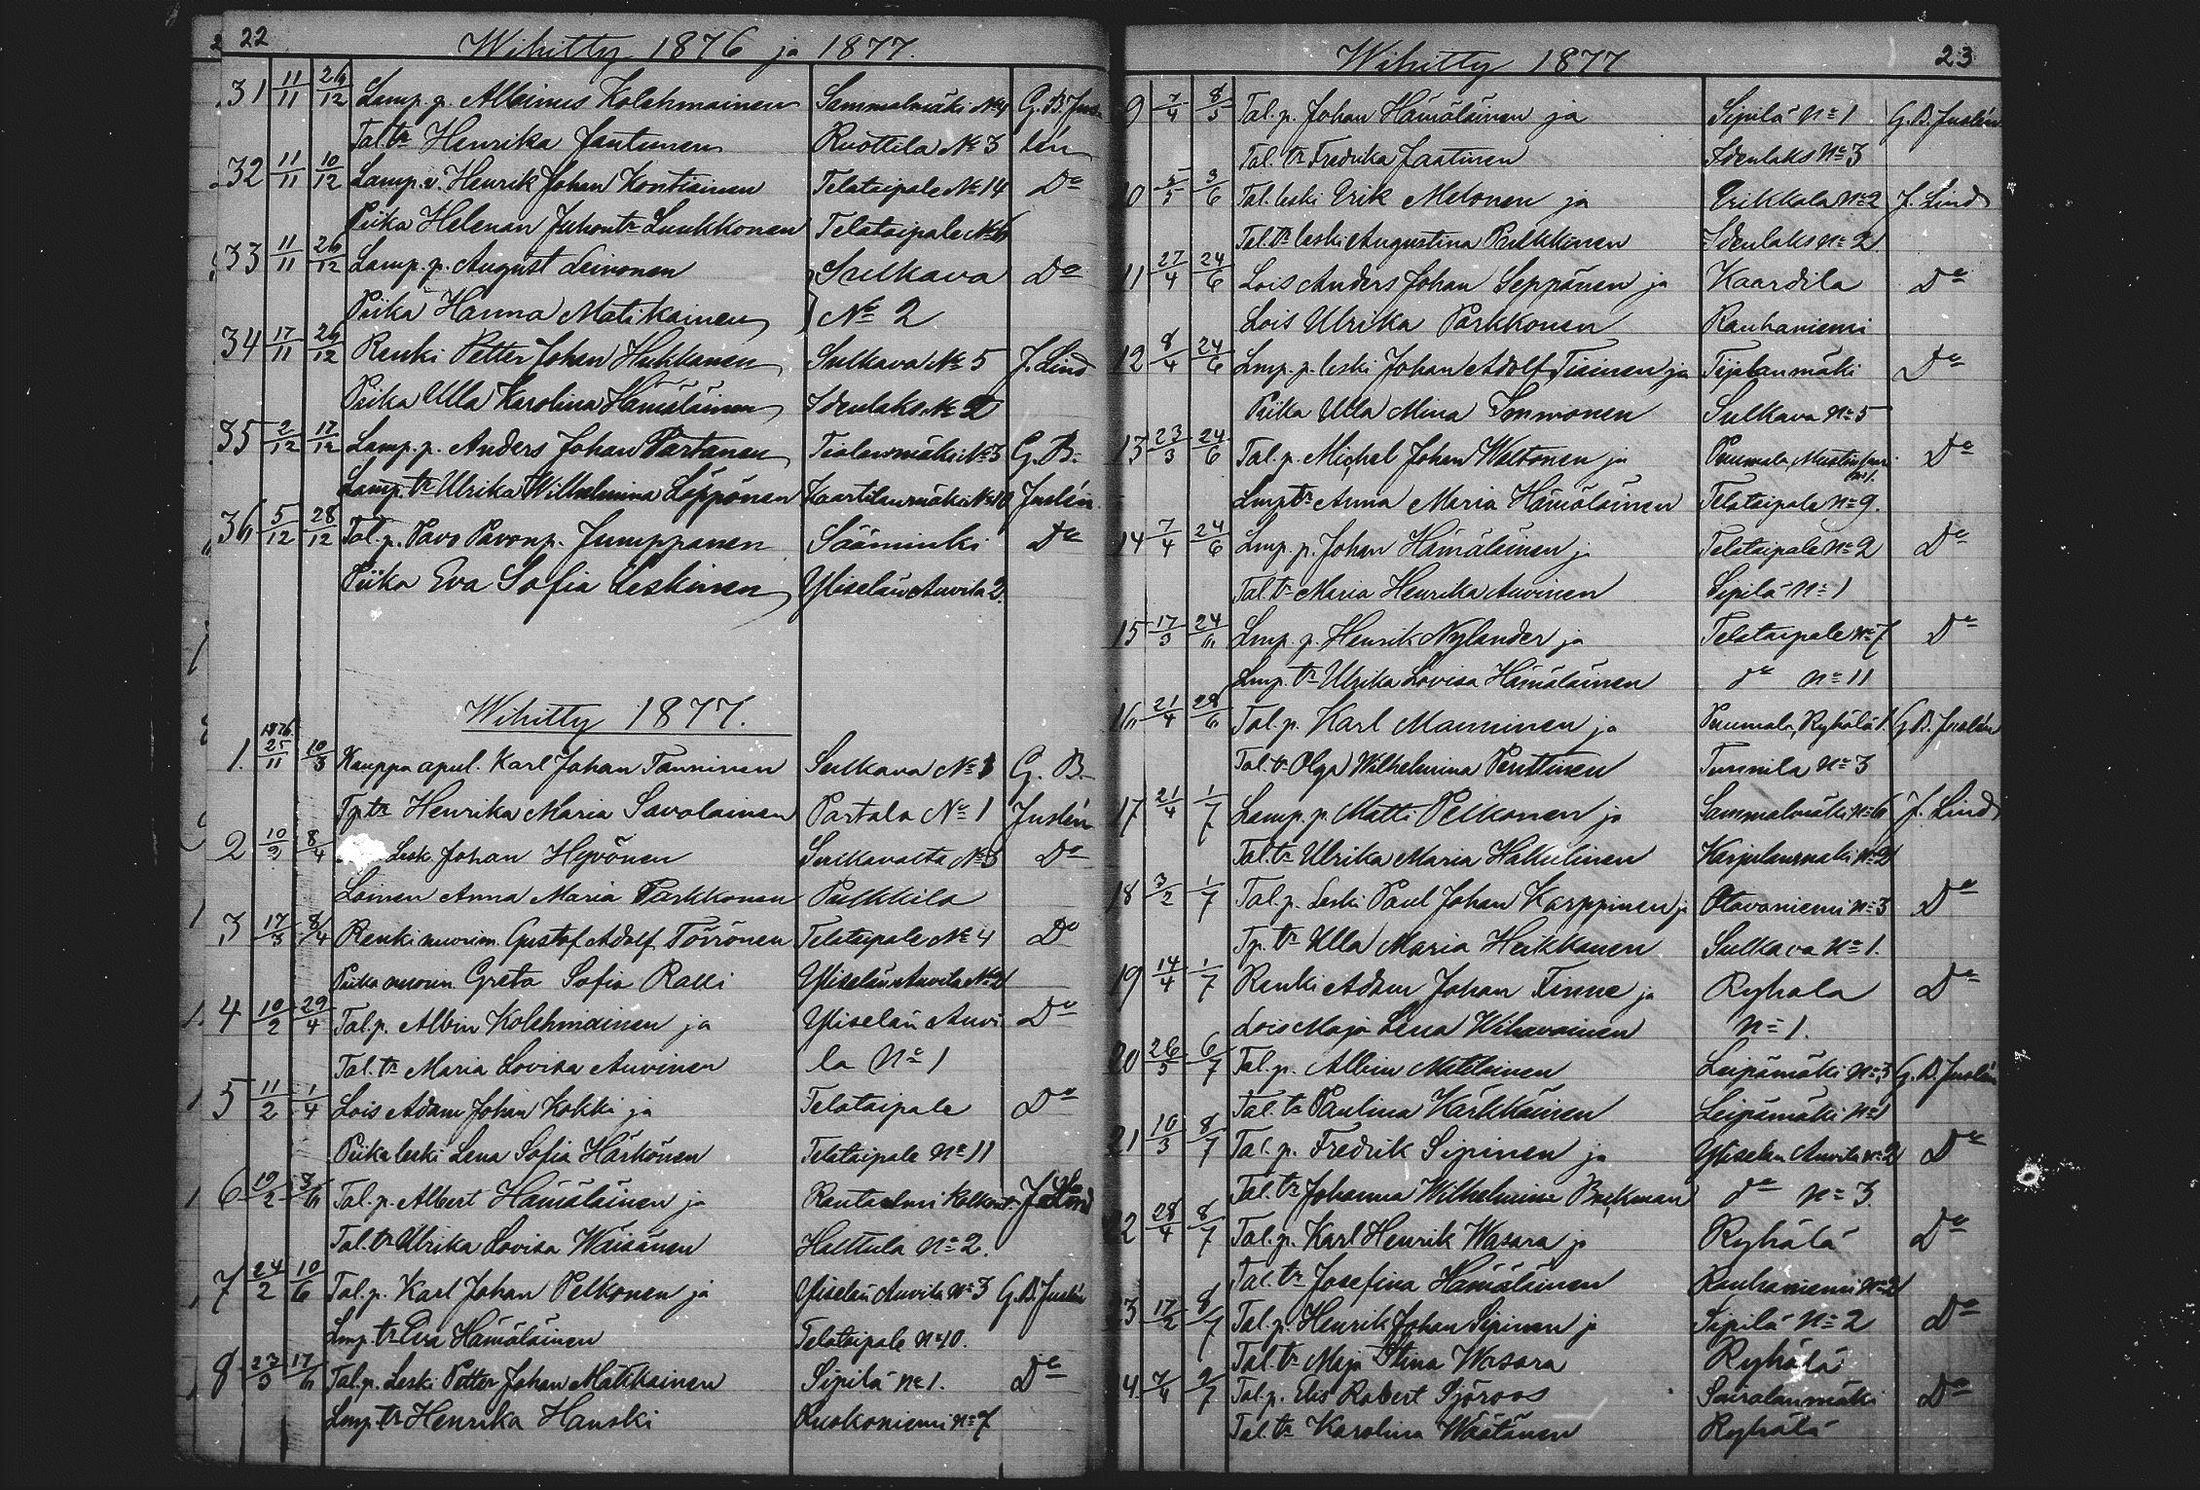 22
Wihitty 1876 ja 1877.
31 11/11 26/12 Lamp. p. Albinus Kolehmainen Sammalmäki No 4 G. B. Jus-
Tal. tr Henrika Jantunen Ruottila No 3 lén
32 11/11 10/12 Lamp. v. Henrik Johan Kontiainen Telataipale No 14 Do
Piika Helenan Juhontr Luukkonen Telataipale No 6
33 11/11 26/12 Lamp. p. August Leinonen Sulkava Do
Piika Hanna Matikainen No 2
34 17/11 26/12 Renki Petter Johan Hukkanen Sulkava No 5 J. Lind
Piika Ulla Karolina Hämäläinen Idenlaks No 2
35 2/12 17/12 Lamp. p. Anders Johan Partanen No 3 G. B.
Lamp. tr Ulrika Wilhelmina Leppönen Kaartilanmäki No 10 Juslén
36 5/12 28/12 Tal. p. Pavo Pavonp. Jumppanen Sääminki Do
Piika Eva Sofia Leskinen Yliselän Auvila 2.
Wihitty 1877.
1. 1876 25/11 10/3 Kauppa apul. Karl Johan Tanninen Sulkava No G. B.
Tp. tr Henrika Maria Savolainen Partala No 1 Juslén
2 10/3 8/4 Lesk. Johan Hyvönen Sulkavalta No 3 Do
Loinen Anna Maria Parkkonen Pulkkila
3 17/3 8/4 Renki nuorim. Gustaf Adolf Törrönen Telataipale No 4 Do
Piika nuorin Greta Sofia Ralli Yliselän Auvila No 2
4 10/2 29/4 Tal. p. Albin Kolehmainen ja Yliselän Auvi- Do
Tal. tr Maria Lovisa Auvinen la No 1
5 11/2 1/4 Lois Adam Johan Kokki ja Telataipale Do
Piika leski Lena Sofia Härkönen Telataipale No 11
6 19/2 3/6 Tal. p. Albert Hämäläinen ja Rantasalmi J. Lind
Tal. tr Ulrika Lovisa Wäisänen Halttula No 2.
7 24/2 10/6 Tal. p. Karl Johan Pelkonen ja Yliselän Auvila No 3 G. B. Juslén
Lmp. tr Eva Hämäläinen Telataipale No 10.
8 23/3 17/6 Tal. p. Leski Petter Johan Mätikkäinen Sipilä No 1. Do
Lmp. tr Henrika Hanski Ruokoniemi No 7
Wihitty 1877
23
9 7/4 8/5 Tal. p. Johan Hämäläinen ja Sipilä No 1 G. B. Juslén
Tal. tr Fredrika Jaatinen Idenlaks No 3
10 5/5 3/6 Tal. leski Erik Melonen ja Erikkala No 2 J. Lind
Tal. tr leski Augustina Pulkkinen Idenlaks No 2
11 27/4 24/6 Lois Anders Johan Seppänen ja Kaardila Do
Lois Ulrika Parkkonen Rauhaniemi
12 8/4 24/6 Lmp. p. leski Johan Adolf Tiainen ja Tijolanmäki Do
Piika Ulla Mina Immonen Sulkava No 5
13 23/3 24/6 Tal. p. Michel Johan Waltonen ja Puumala, No 1. Do
Lmp. tr Anna Maria Hämäläinen Telataipale No 9.
14 7/4 24/6 Lmp. p. Johan Hämäläinen ja Telataipale No 2 Do
Tal. tr Maria Henrika Auvinen Sipilä No 1
15 17/3 24/6 Lmp. p. Henrik Nylander ja Telataipale No 7 Do
Lmp. tr Ulrika Lovisa Hämäläinen do No 11
16 21/4 28/6 Tal. p. Karl Manninen ja Puumala, Ryhälä 1. G. B. Juslén
Tal. tr Olga Wilhelmina Penttinen Tunnila No 3
17 21/4 1/7 Lamp. p. Matti Pelkonen ja Sammalmäki No 6 J. Lind
Tal. tr Ulrika Maria Hakulinen Karjulanmäki No 2
18 3/2 1/7 Tal. p. Leski Paul Johan Karppinen ja Otavaniemi No 3 Do
Tp. tr Ulla Maria Heikkanen Sulkava No 1.
19 14/4 1/7 Renki Adam Johan Finne ja Ryhala Do
Lois Maja Lena Wihavainen No 1.
20 26/5 6/7 Tal. p. Albin Miettinen Leipämäki No 3 G. B. Juslén
Tal. tr Paulina Kärkkäinen Leipämäki No 1
21 10/3 8/7 Tal. p. Fredrik Sipinen ja Yliselän Auvila No 2 Do
Tal. tr Johanna Wilhelmina Backman do No 3.
22 28/4 8/7 Tal. p. Karl Henrik Wasara ja Ryhälä Do
Tal. tr Josefina Hämäläinen Rauhaniemi No 2
23 17/2 8/7 Tal. p. Henrik Johan Sipinen ja Sipilä No 2 Do
Tal. tr Maja Stina Wasara Ryhälä
4 7/4 2/7 Tal. p. Elis Robert Sjöroos Sairalanmäki Do
Tal. tr Karolina Wäätänen Ryhälä